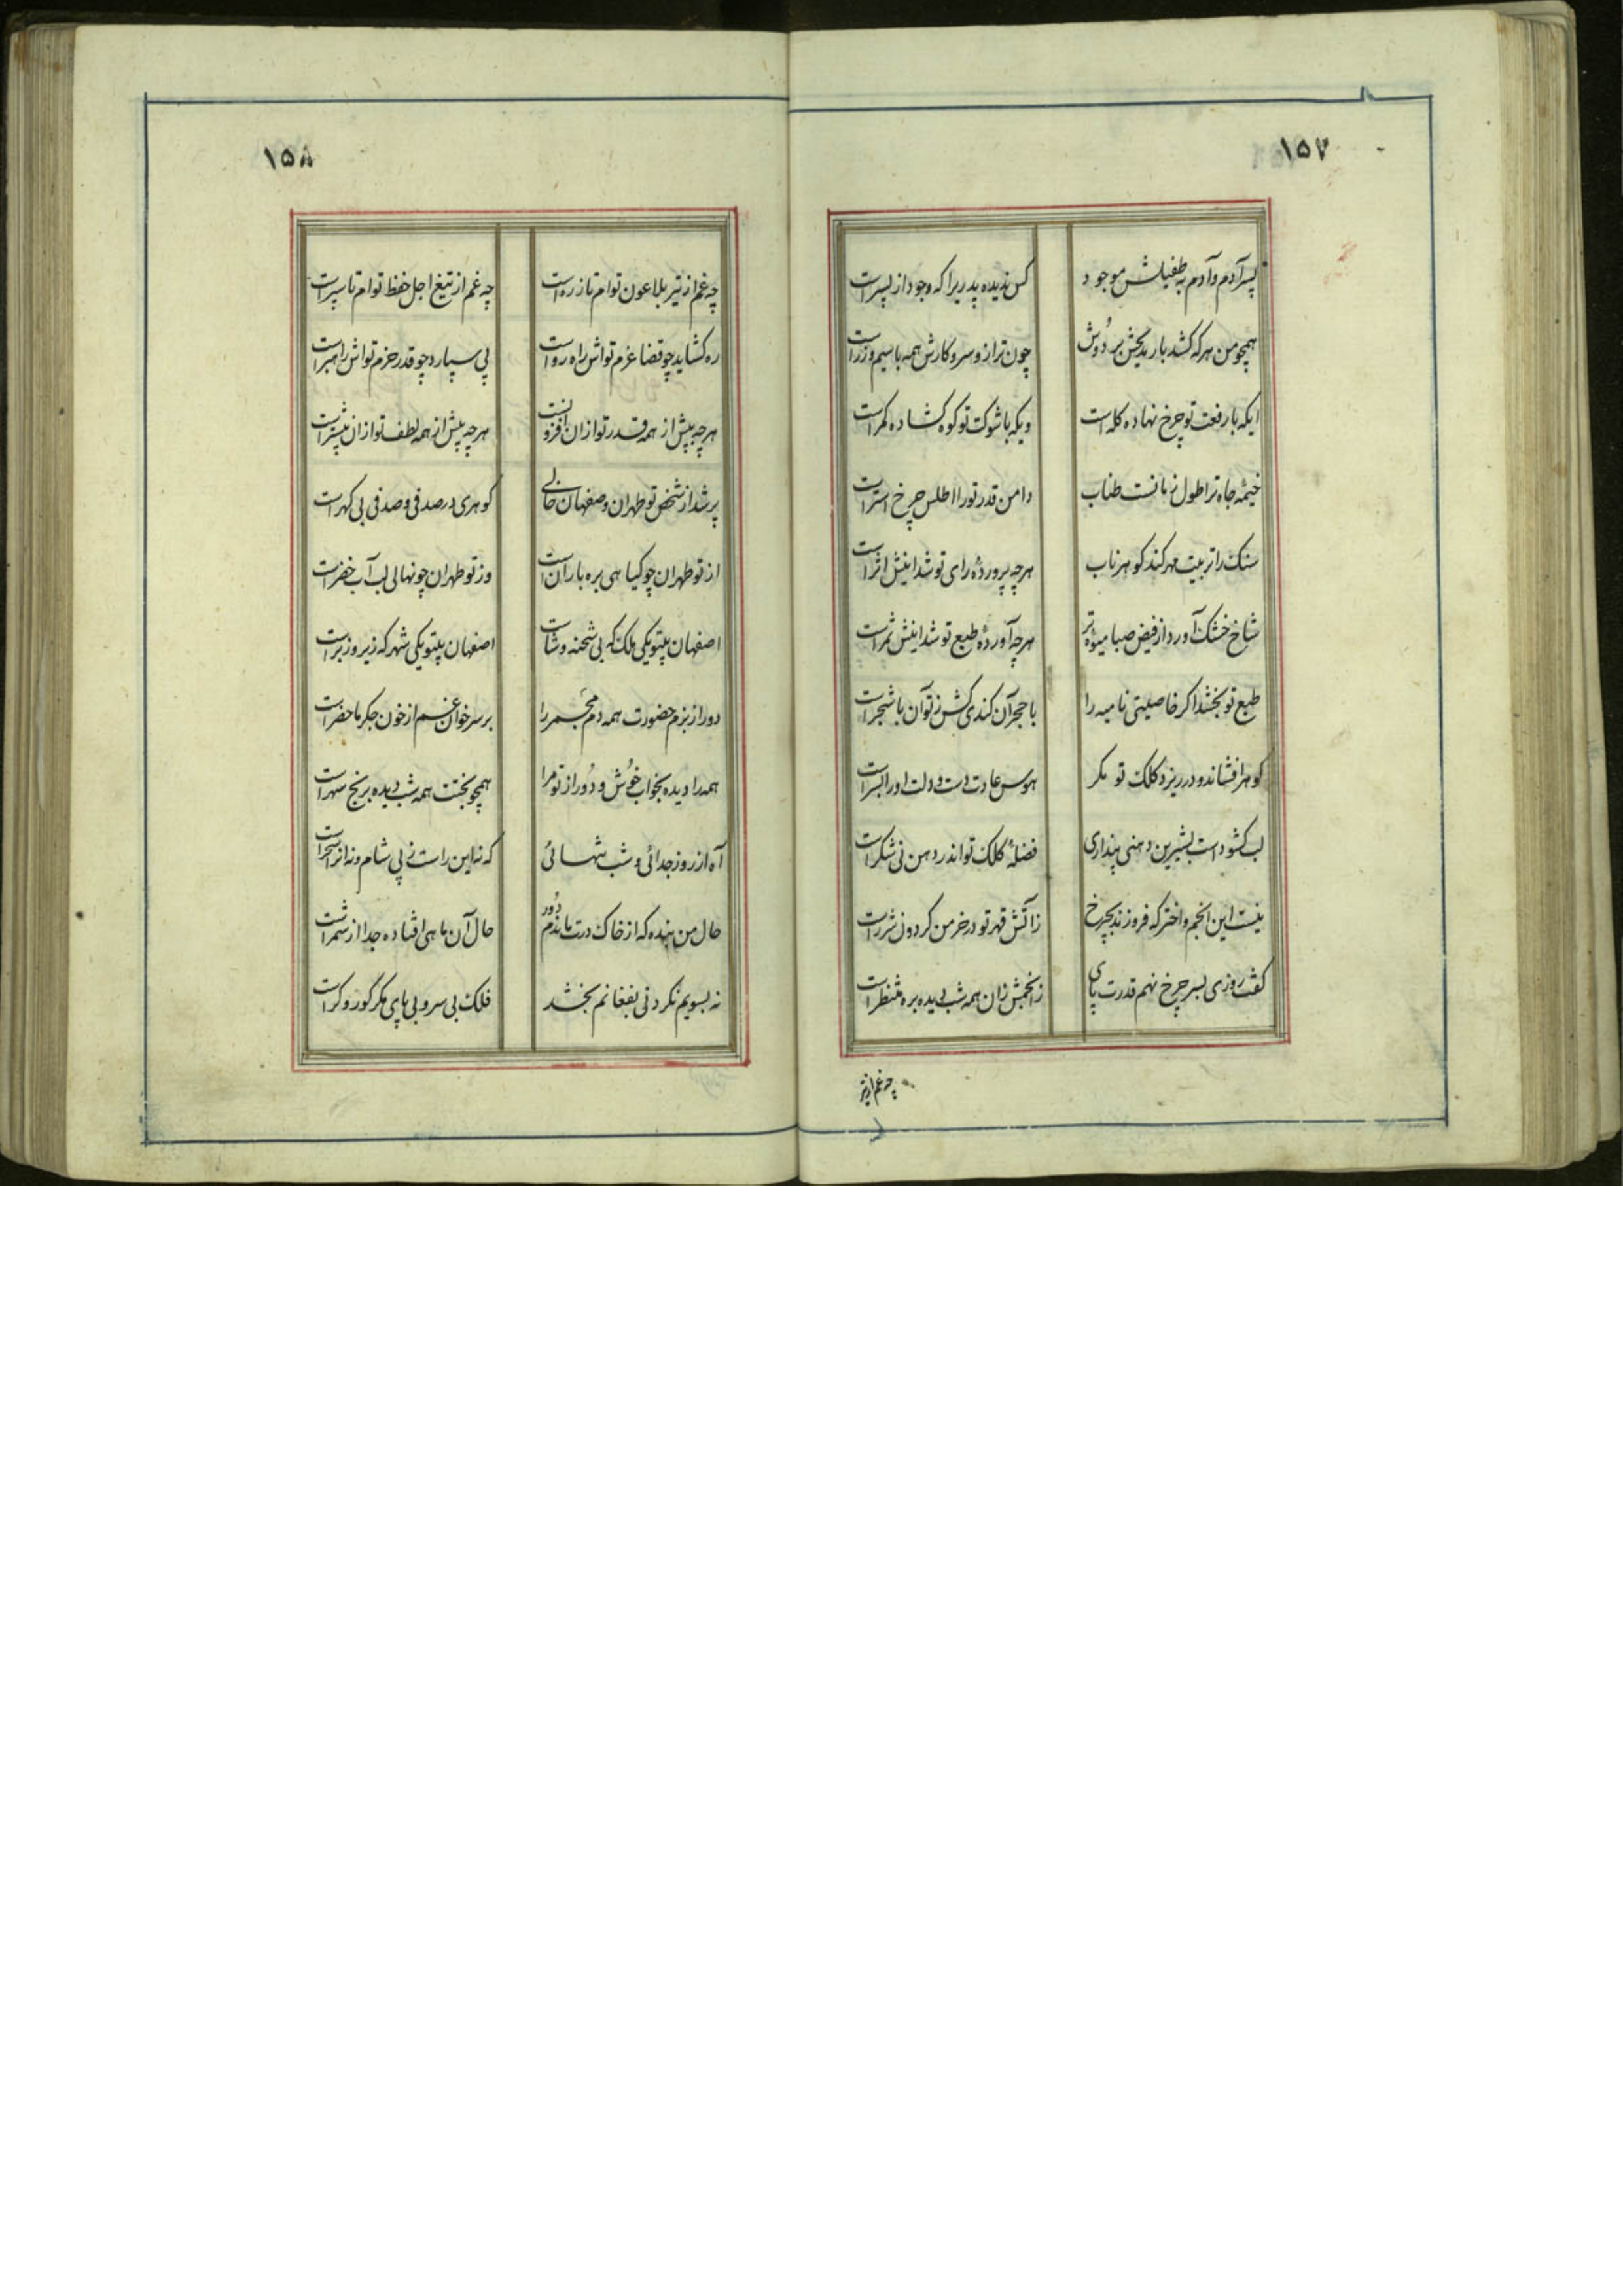 ۱۵۷
پسر آدم و آدم به طفیلش موجود کس ندیده پدریرا که وجود از پسر است
همچو من هر که کشد بار مدیحش بر دوش چون ترازو سر و کارش همه با سیم و زر است
ایکه با رفعت تو چرخ نهاده کله است ویکه با شوکت تو کوه کشاده کمر است
خیمهٔ جاه ترا طول زمانست طناب دامن قدر تو را اطلس چرخ استر است
سنک را تربیت مهر کند کوهر ناب هرچه پروردهٔ رای تو شد اینش اثر است
شاخ خشک آورد از فیض صبا میوهٔ تر هرچه آوردهٔ طبع تو شد اینش ثمر است
طبع تو بخشد اکر خاصیتی نامیه را با حجر آن کندی کش ز تو آن با شجر است
کوهر افشاند و در ریزد کلک تو مکر هوس عادت دست و دلت اورا بسر است
لب کشوداست بشیرین دهنی پنداری فضلهٔ کلک تو اندر دهن نی شکر است
نیست این انجم و اختر که فروزند بچرخ ز آتش قهر تو در خرمن کردون شرر است
کفت روزی بسر چرخ نهم قدرت پای ز انجمش زان همه شب دیده بره منتظر است
چه غم از تیر
۱۵۸
چه غم از تیر بلا عون توام تا زره است چه غم از تیغ اجل حفظ توام تا سپر است
ره کشاید چو قضا عزم تواش راه رو است پی سپارد چو قدر حزم تواش راهبر است
هرچه بیش از همه قدر تو از ان افزونست هرچه پیش از همه لطف تو از ان پیشتر است
پر شد از شخص تو طهران و صفهان خالی کوهری در صدفی و صدفی بی کهر است
از تو طهران چو کیاهی بره باران است وز تو طهران چو نهالی لب آب خضر است
اصفهان بیتو یکی ملک که بی شحنه و شاست اصفهان بیتو یکی شهر که زیر و زبر است
دور از بزم حضورت همه دم مجمر را بر سر خوان غم از خون جکر ماحضر است
همه را دیده بخواب خوش و دور از تو مرا همچو بختت همه شب دیده برنج سهر است
آه از روز جدائی و شب تنهائی که نه این راست ز پی شام و نه انرا سحر است
حال من بنده که از خاک درت ماندم دور حال آن ماهی افتاده جدا از شمر است
نه بسویم نکرد نی بفغانم بخشد فلک بی سر و بی پای مکر کور و کر است